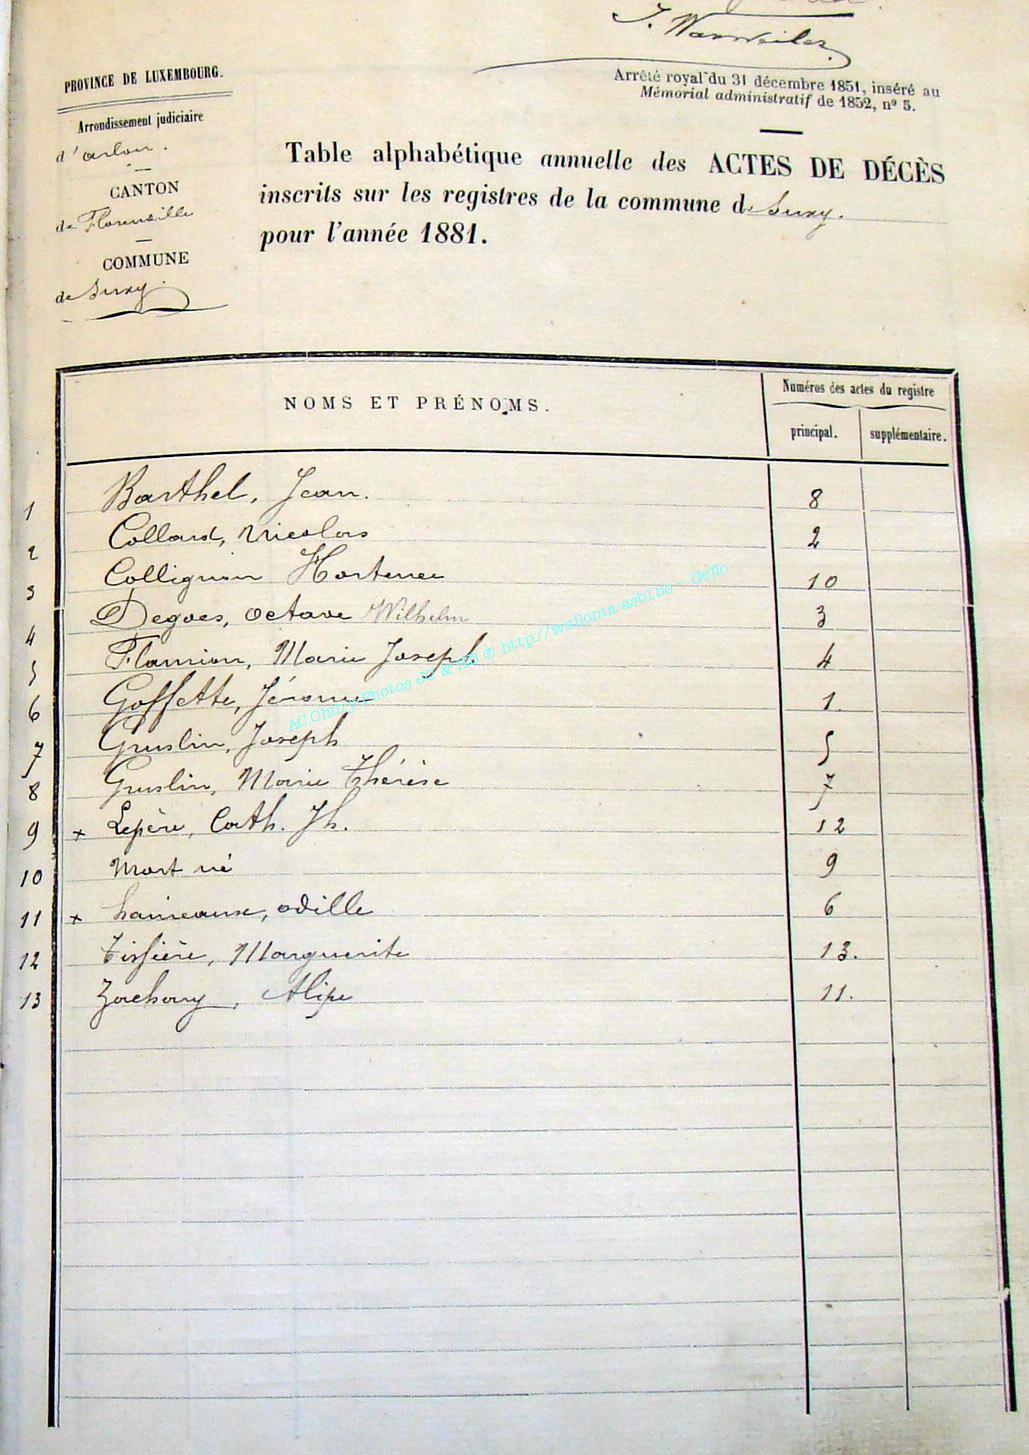 J. Warweiler
PROVINCE DE LUXEMBOURG.
Arrondissement judiciaire
d'arlon.
CANTON
de Florenville
COMMUNE
de Suxy.
Arrêté royal du 31 décembre 1851, inséré au
Mémorial administratif de 1852, nº 5.
Table alphabétique annuelle des ACTES DE DÉCÈS
inscrits sur les registres de la commune de Suxy.
pour l'année 1881.
NOMS ET PRÉNOMS.
Numéros des actes du registre
principal. supplémentaire.
1 Barthel, Jean. 8
2 Collard, Nicolas 2
3 Collignon Hortense 10
4 Degves, octave Wilhelm 3
5 Flamion, Marie Joseph. 4
6 Goffette, Jérome 1.
7 Gruslin, Joseph 5
8 Gruslin, Marie Thérèse 7
9 x Lepère, Cath. Jh. 12
10 Mort né 9
11 x odille 6
12 Tissière, Marguerite 13.
13 Zachary, Alipe 11.
AC.Chiny-Photos de © http://wallonia-asbl.be - Geflo